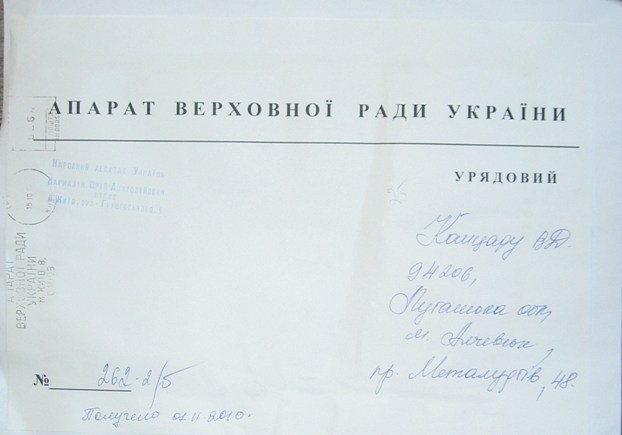 АПАРАТ ВЕРХОВНОЇ РАДИ УКРАЇНИ
УРЯДОВИЙ
Народний депутат України
АПАРАТ
ВЕРХОВНОЇ РАДИ
УКРАЇНИ
м. КИЇВ 8
В.Д.
94206,
Луганська обл,
м. Алчевськ,
пр. Металургів, 48.
№ 262-2/5
Получено 2010г